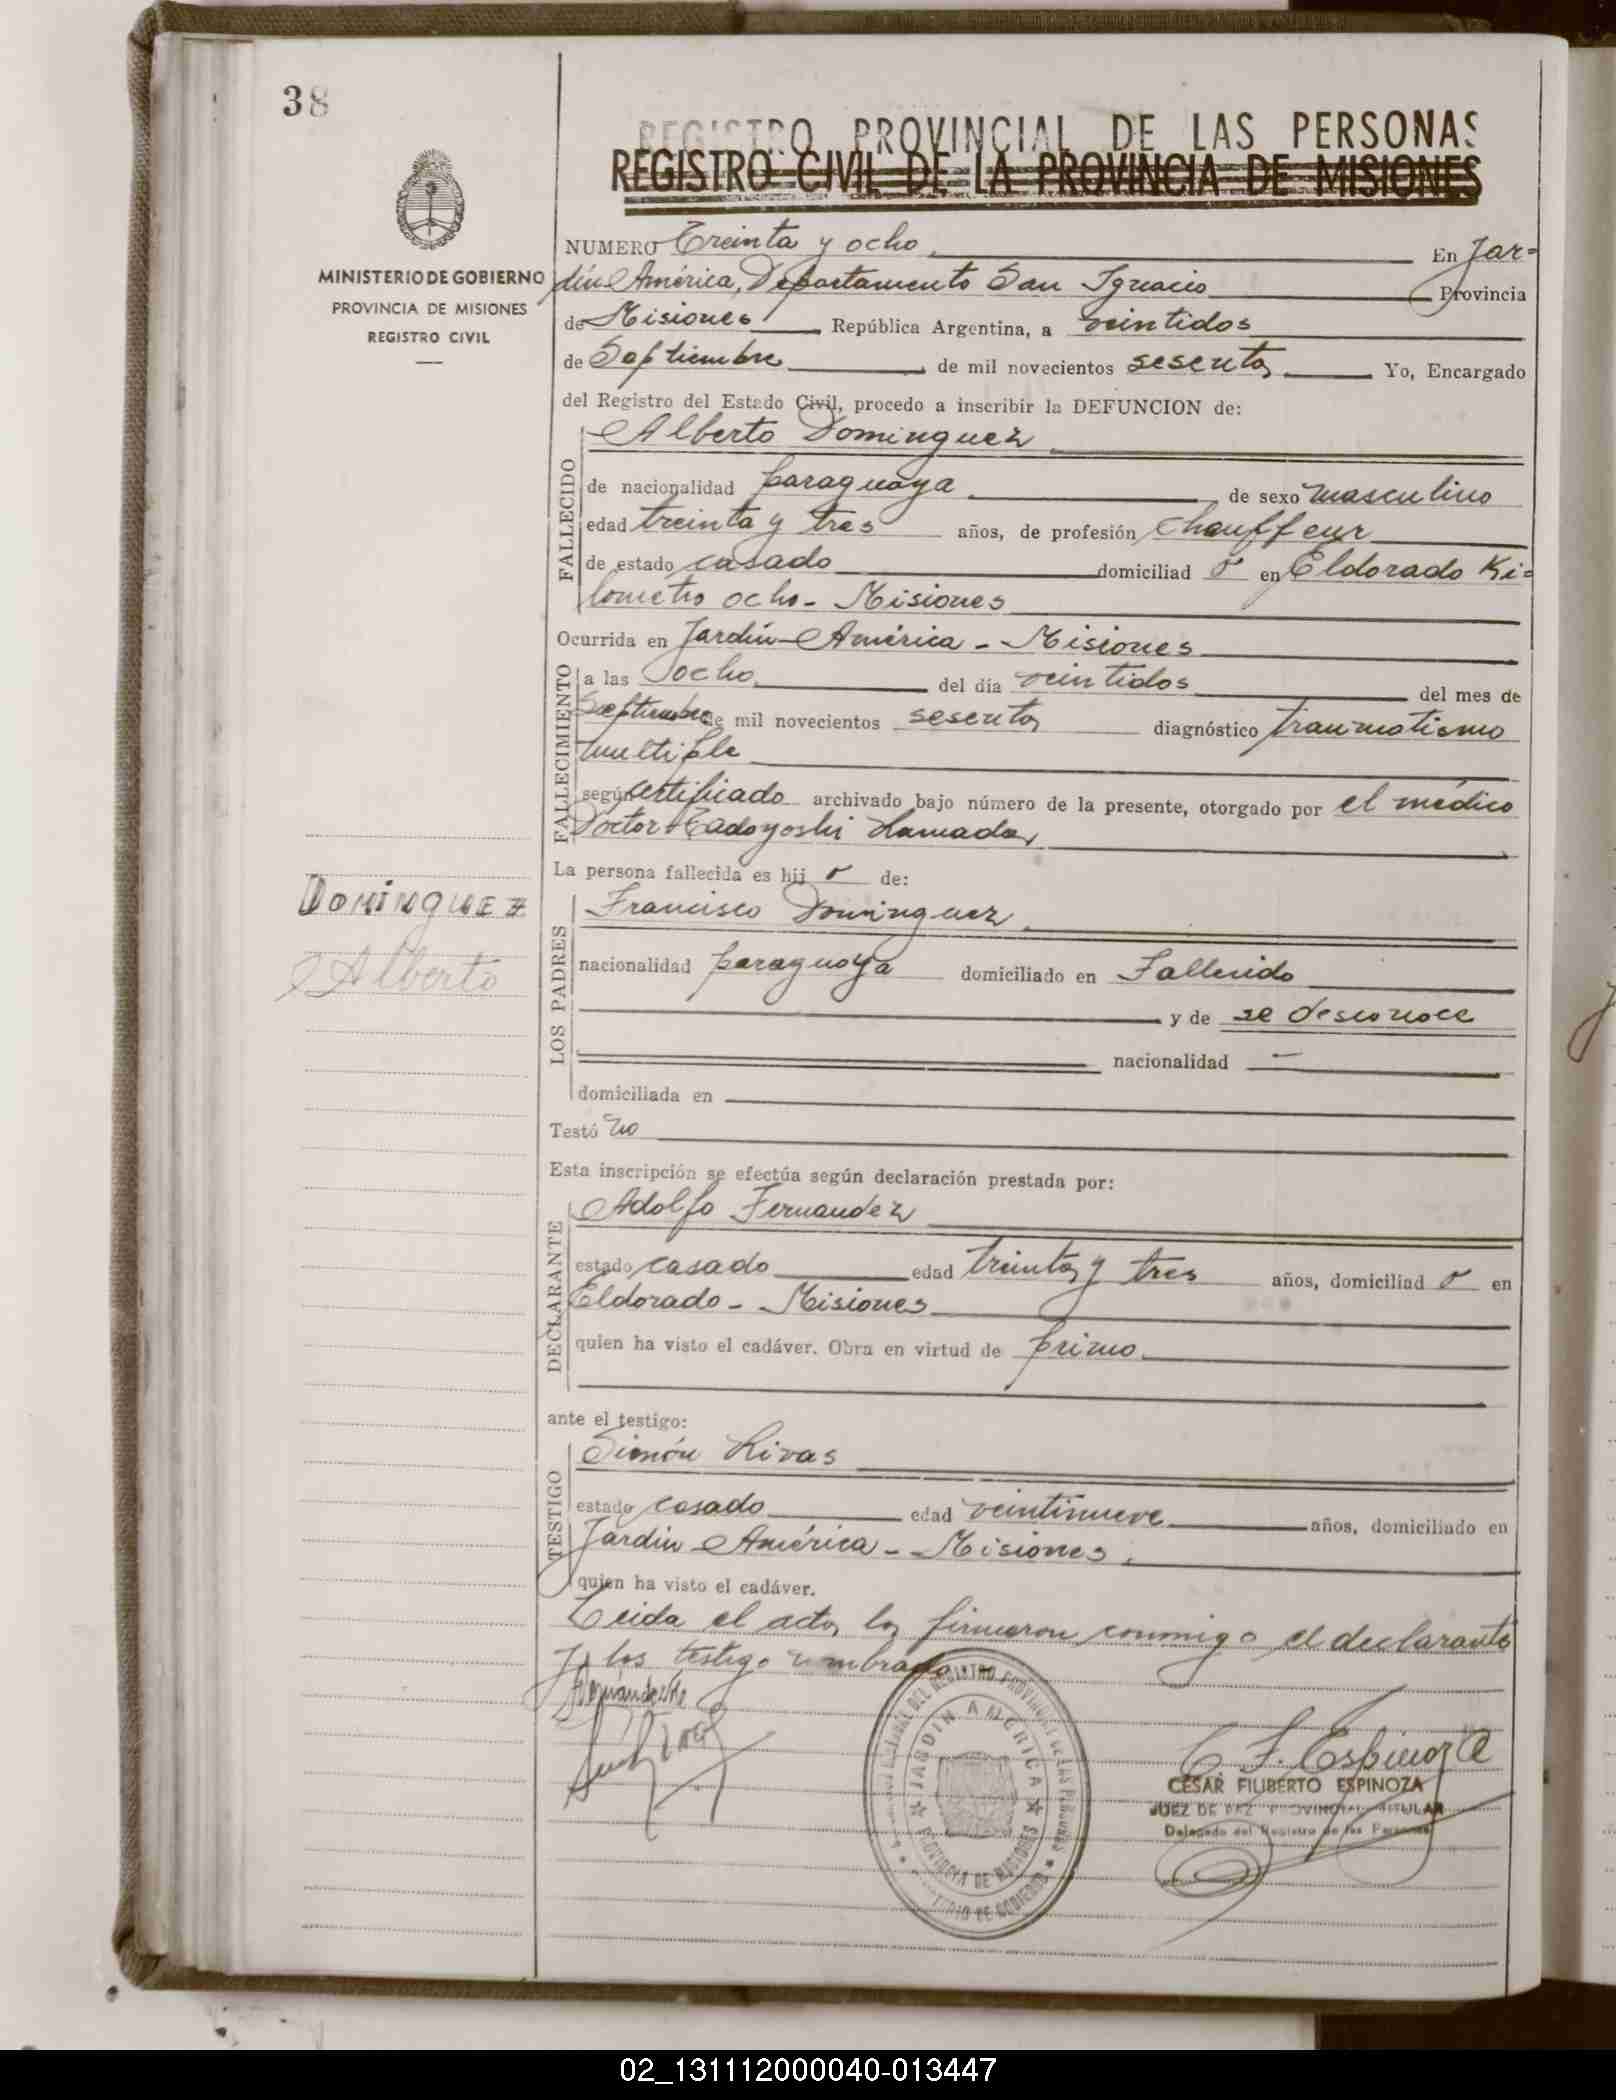 38
REGISTRO PROVINCIAL DE LAS PERSONAS
REGISTRO CIVIL DE LA PROVINCIA DE MISIONES
MINISTERIO DE GOBIERNO
PROVINCIA DE MISIONES
REGISTRO CIVIL
NUMERO Treinta y ocho En Jar=
dín América, Departamento San Ignacio Provincia
de Misiones República Argentina, a veintidos
de Septiembre de mil novecientos sesenta Yo, Encargado
del Registro del Estado Civil, procedo a inscribir la DEFUNCION de:
FALLECIDO
Alberto Dominguez
de nacionalidad paraguaya de sexo masculino
edad treinta y tres años, de profesión Chauffeur
de estado casado domiciliad o en Eldorado Ki=
lometro ocho - Misiones
Ocurrida en Jardín América - Misiones
FALLECIMIENTO
a las ocho del día veintidos del mes de
Septiembre de mil novecientos sesenta diagnóstico traumatismo
multiple
según certificado archivado bajo número de la presente, otorgado por el médico
Doctor Tadoyoshi Hamada
La persona fallecida es hij o de:
Dominguez
Alberto
LOS PADRES
Francisco Dominguez
nacionalidad paraguaya domiciliado en Fallecido
y de se desconoce
nacionalidad —
domiciliada en
Testó no
Esta inscripción se efectúa según declaración prestada por:
DECLARANTE
Adolfo Fernandez
estado casado edad treinta y tres años, domiciliad o en
Eldorado - Misiones
quien ha visto el cadáver. Obra en virtud de primo
ante el testigo:
TESTIGO
Simón Rivas
estado casado edad veintinueve años, domiciliado en
Jardín América - Misiones.
quien ha visto el cadáver.
Leida el acta, la firmaron conmigo el declarante
y los testigo nombrado
JARDIN AMERICA
PROVINCIA DE MISIONES
C. F. Espinoza
CESAR FILIBERTO ESPINOZA
JUEZ DE PAZ PROVINCIAL TITULAR
Delegado del Registro de las Personas
02_131112000040-013447